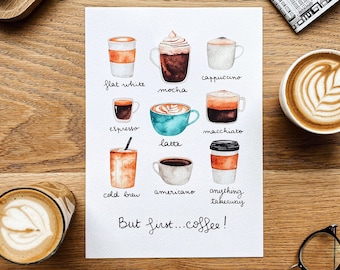 flat white
mocha
cappuccino
espresso
latte
macchiato
cold brew
americano
anything
takeaway
But first...coffee!